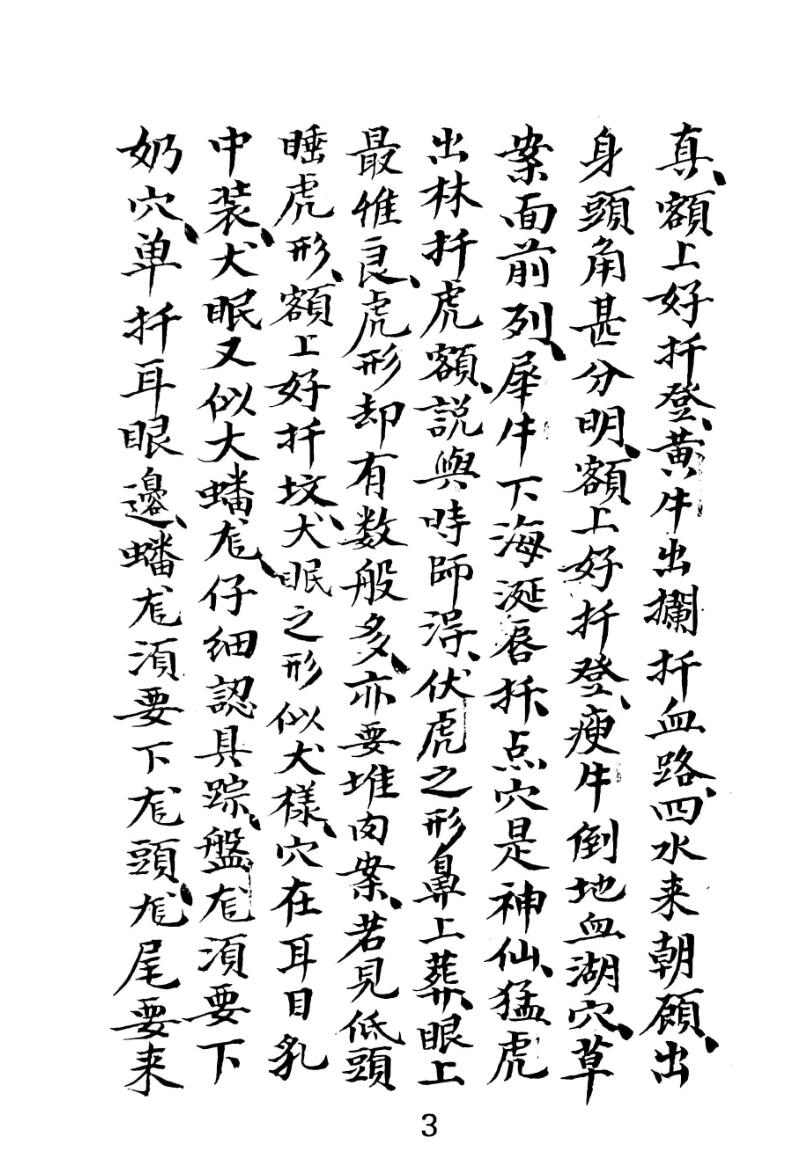 真、額上好扦登、黃牛出攔扦血路、四水来朝顾、出
身頭角甚分明、額上好扦登、瘦牛倒地血湖穴、草
案面前列、犀牛下海涎唇扦、点穴是神仙、猛虎
出林扦虎額、説與時師得、伏虎之形鼻上葬、眼上
最惟良、虎形却有数般多、亦要堆肉案、若見低頭
睡虎形、額上好扦坟、犬眠之形似犬樣、穴在耳目乳
中装、犬眠又似大蟠尨、仔细認真踪、盤尨須要下
奶穴、单扦耳眼邊、蟠尨須要下尨頭、尨尾要来
3